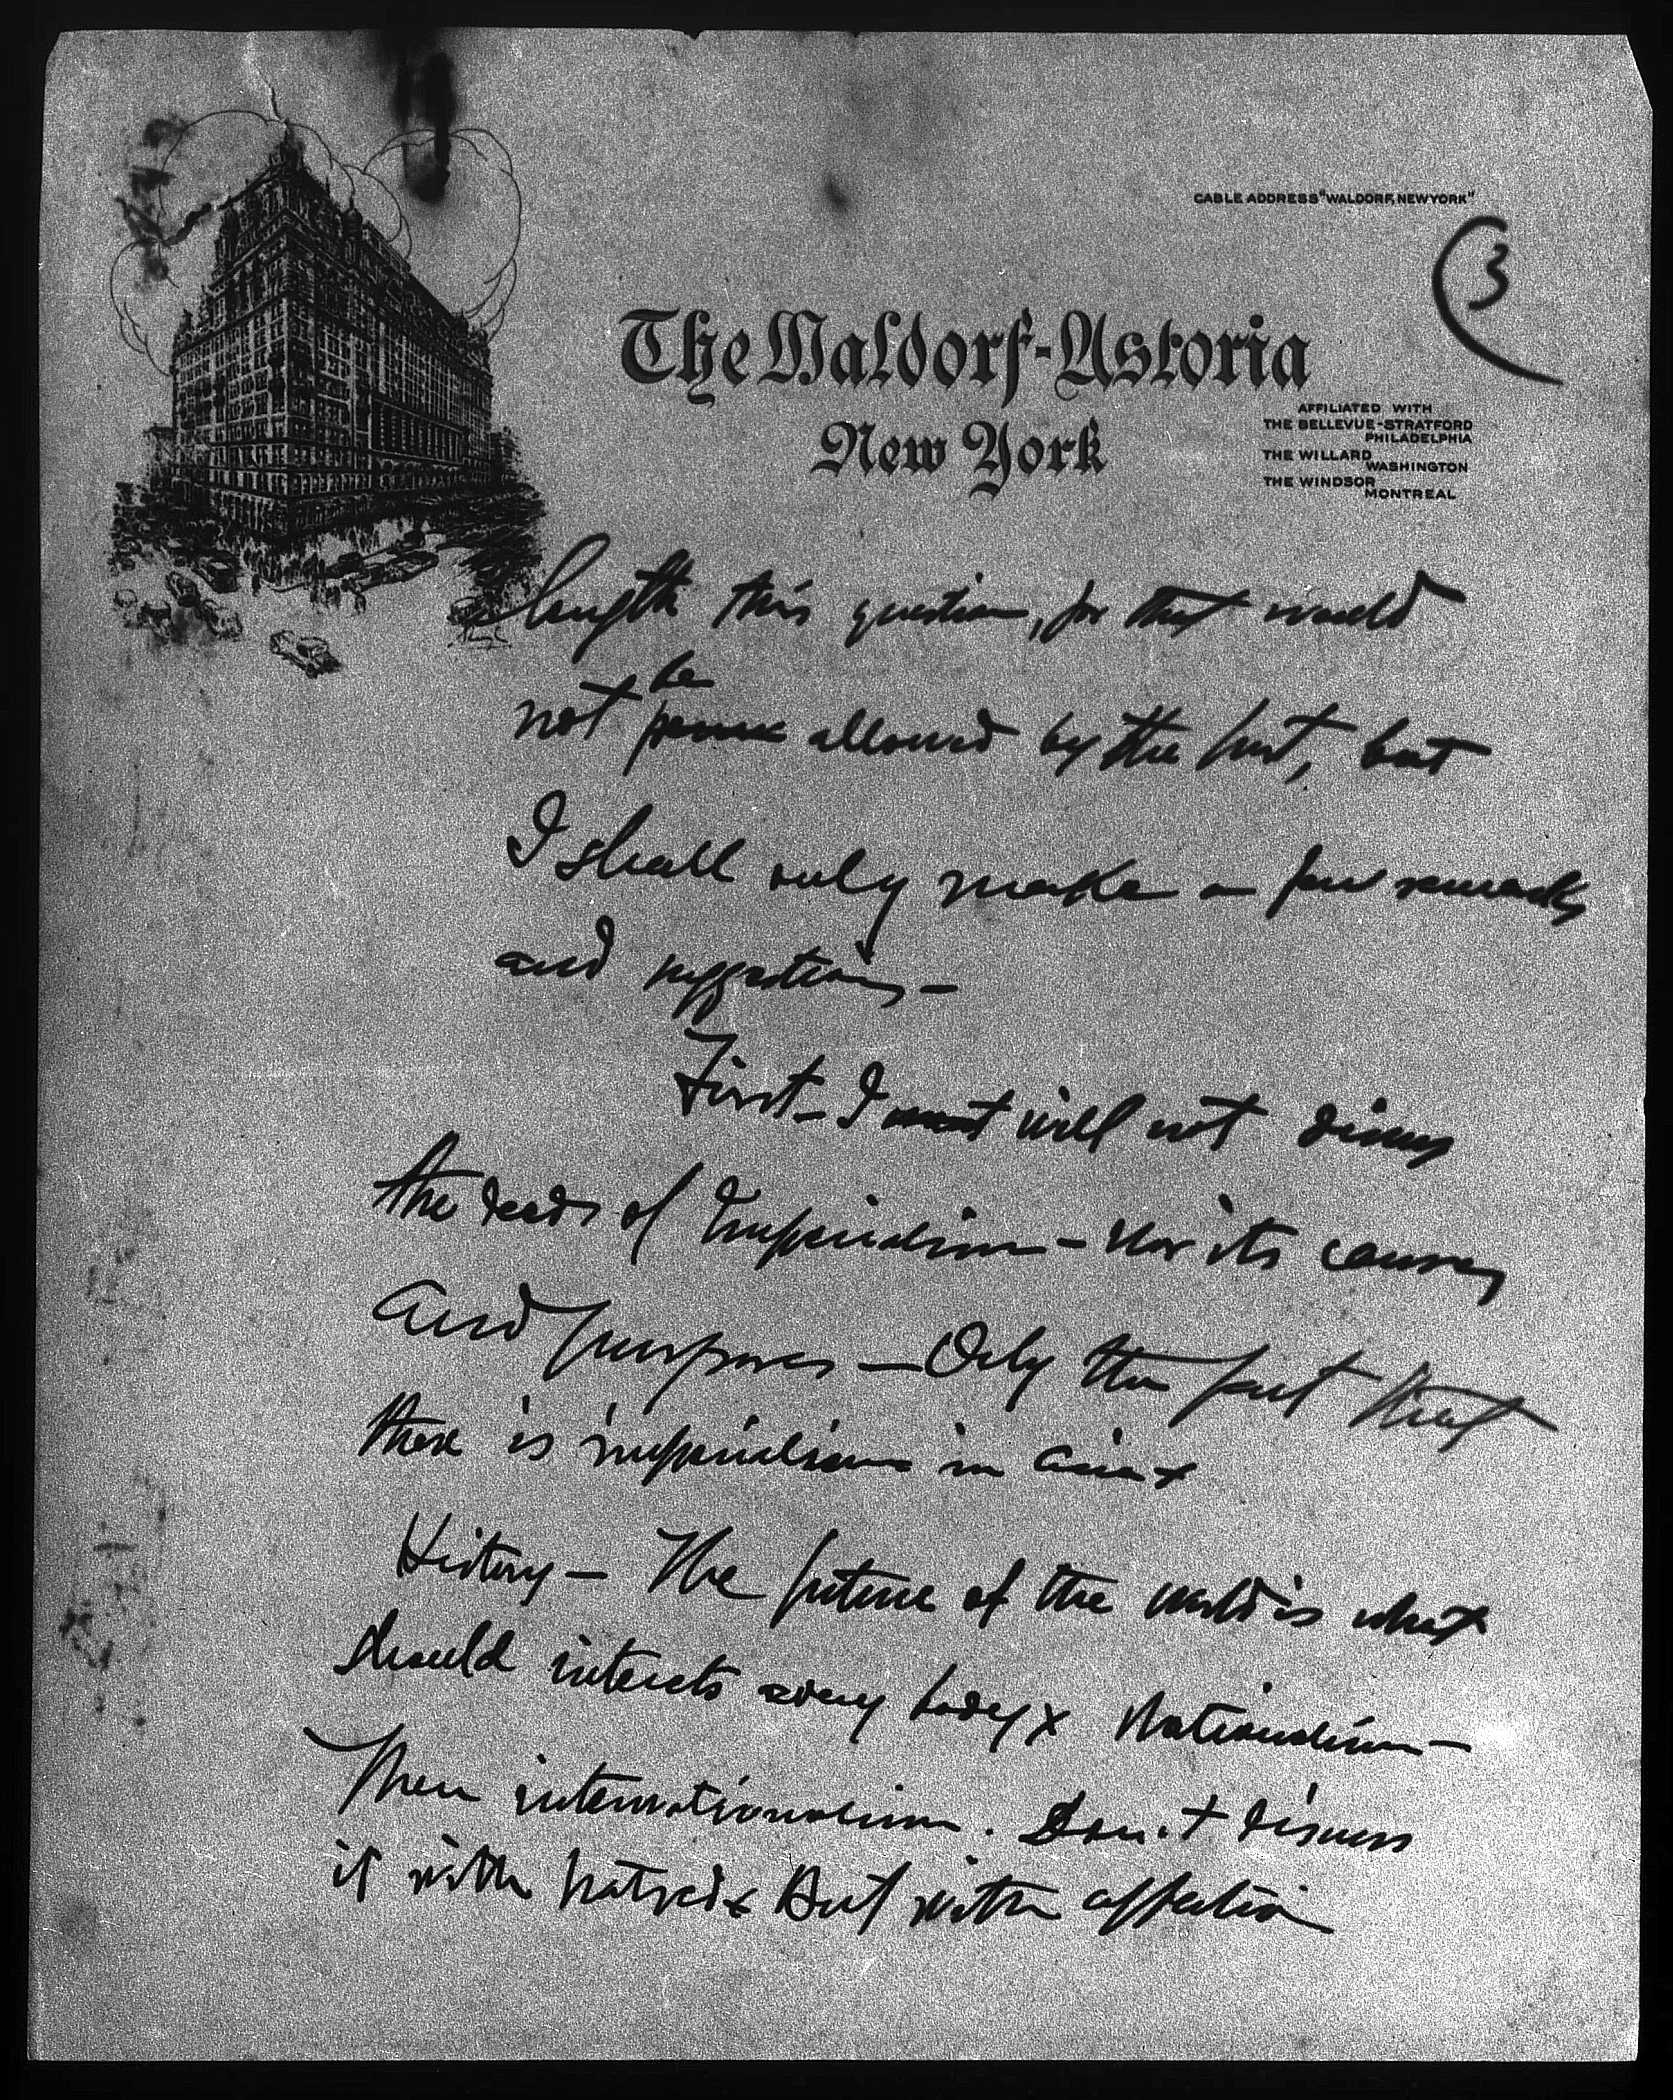 CABLE ADDRESS "WALDORF, NEW YORK"
3
The Waldorf-Astoria
New York
AFFILIATED WITH
THE BELLEVUE-STRATFORD
PHILADELPHIA
THE WILLARD
WASHINGTON
THE WINDSOR
MONTREAL
length this question, for that would
be
not allowed by the but
I shall only make a few remarks
and suggestions -
First - I must will not discuss
the deeds of Imperialism - Nor its causes
And purposes - Only the fact that
there is imperialism in Asia x
History - The future of the world is what
should interests every body x Nationalism -
Then internationalism. Don't discuss
it with hatred x But with affection